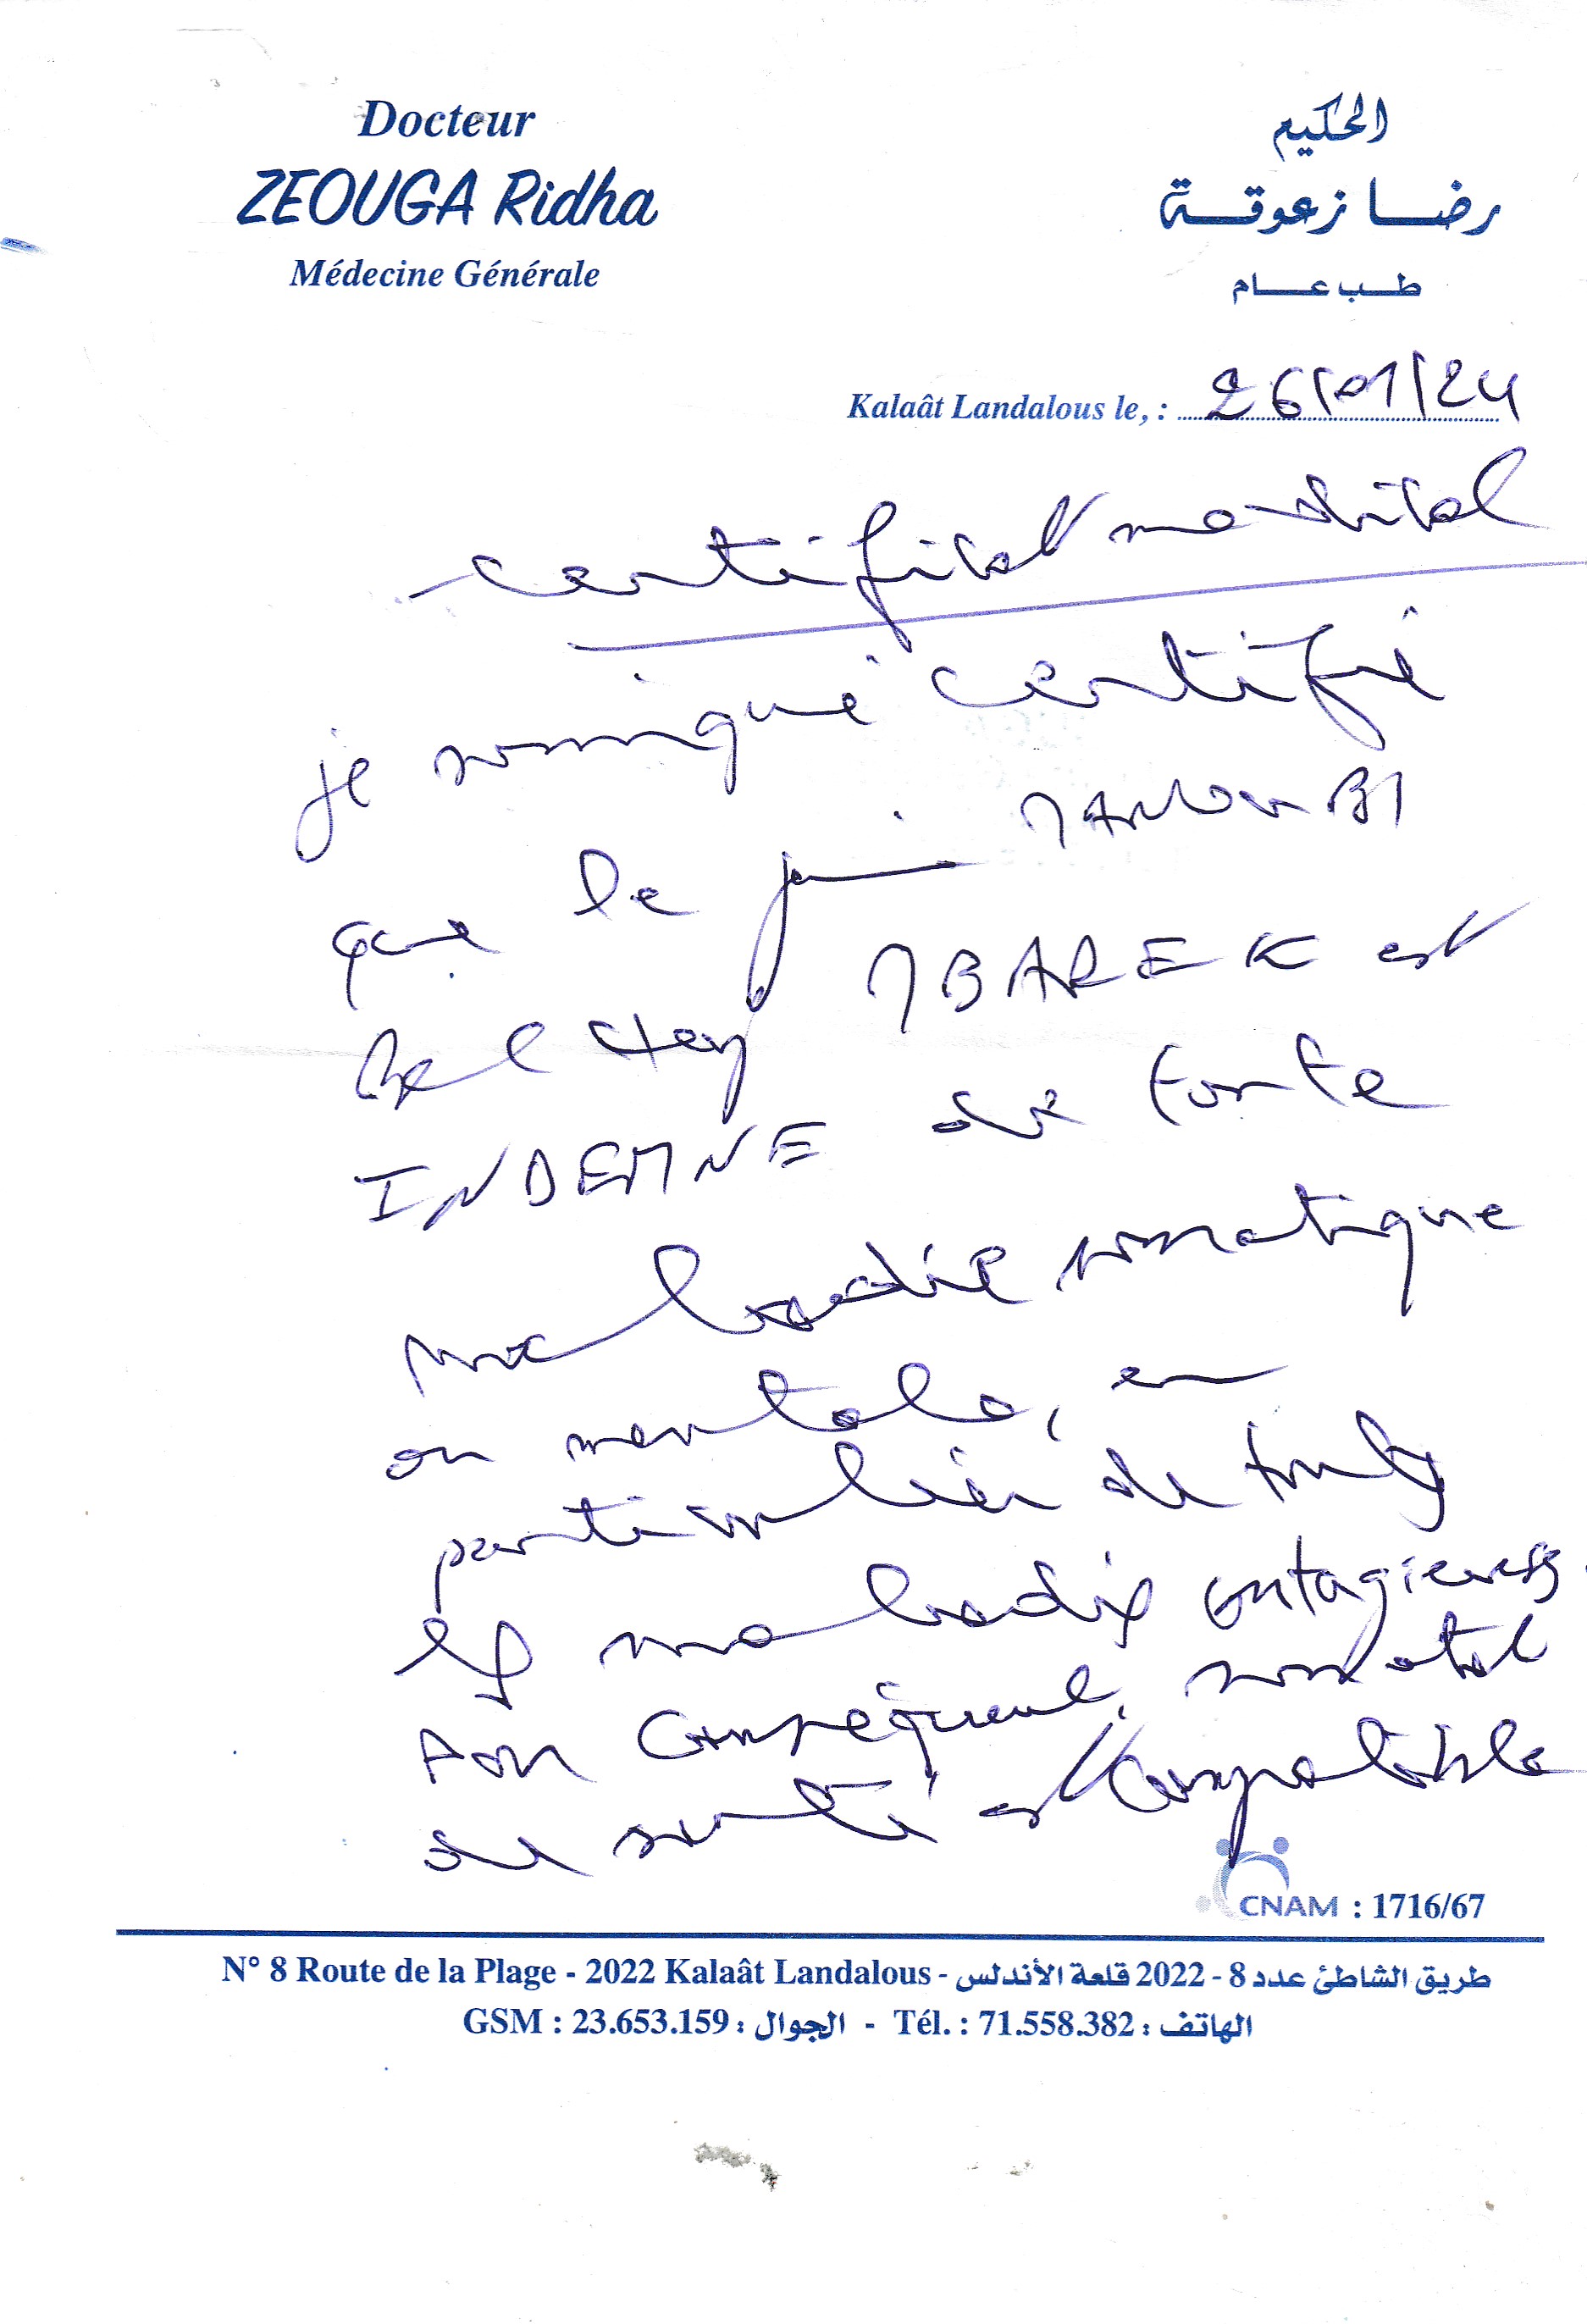 Docteur
ZEOUGA Ridha
Médecine Générale
الحكيم
رضا زعوقة
طب عام
Kalaât Landalous le, : 26/01/24
certificat médical
je soussigné certifie
que le
Bel Hay MBAREK est
INDEMNE de toute
maladie somatique
ou mentale, en
particulier de toutes
les maladies contagieuses.
Par conséquent, son état
de santé est compatible
CNAM : 1716/67
N° 8 Route de la Plage - 2022 Kalaât Landalous - طريق الشاطئ عدد 8 - 2022 قلعة الأندلس
GSM : 23.653.159 : الجوال - Tél. : 71.558.382 : الهاتف